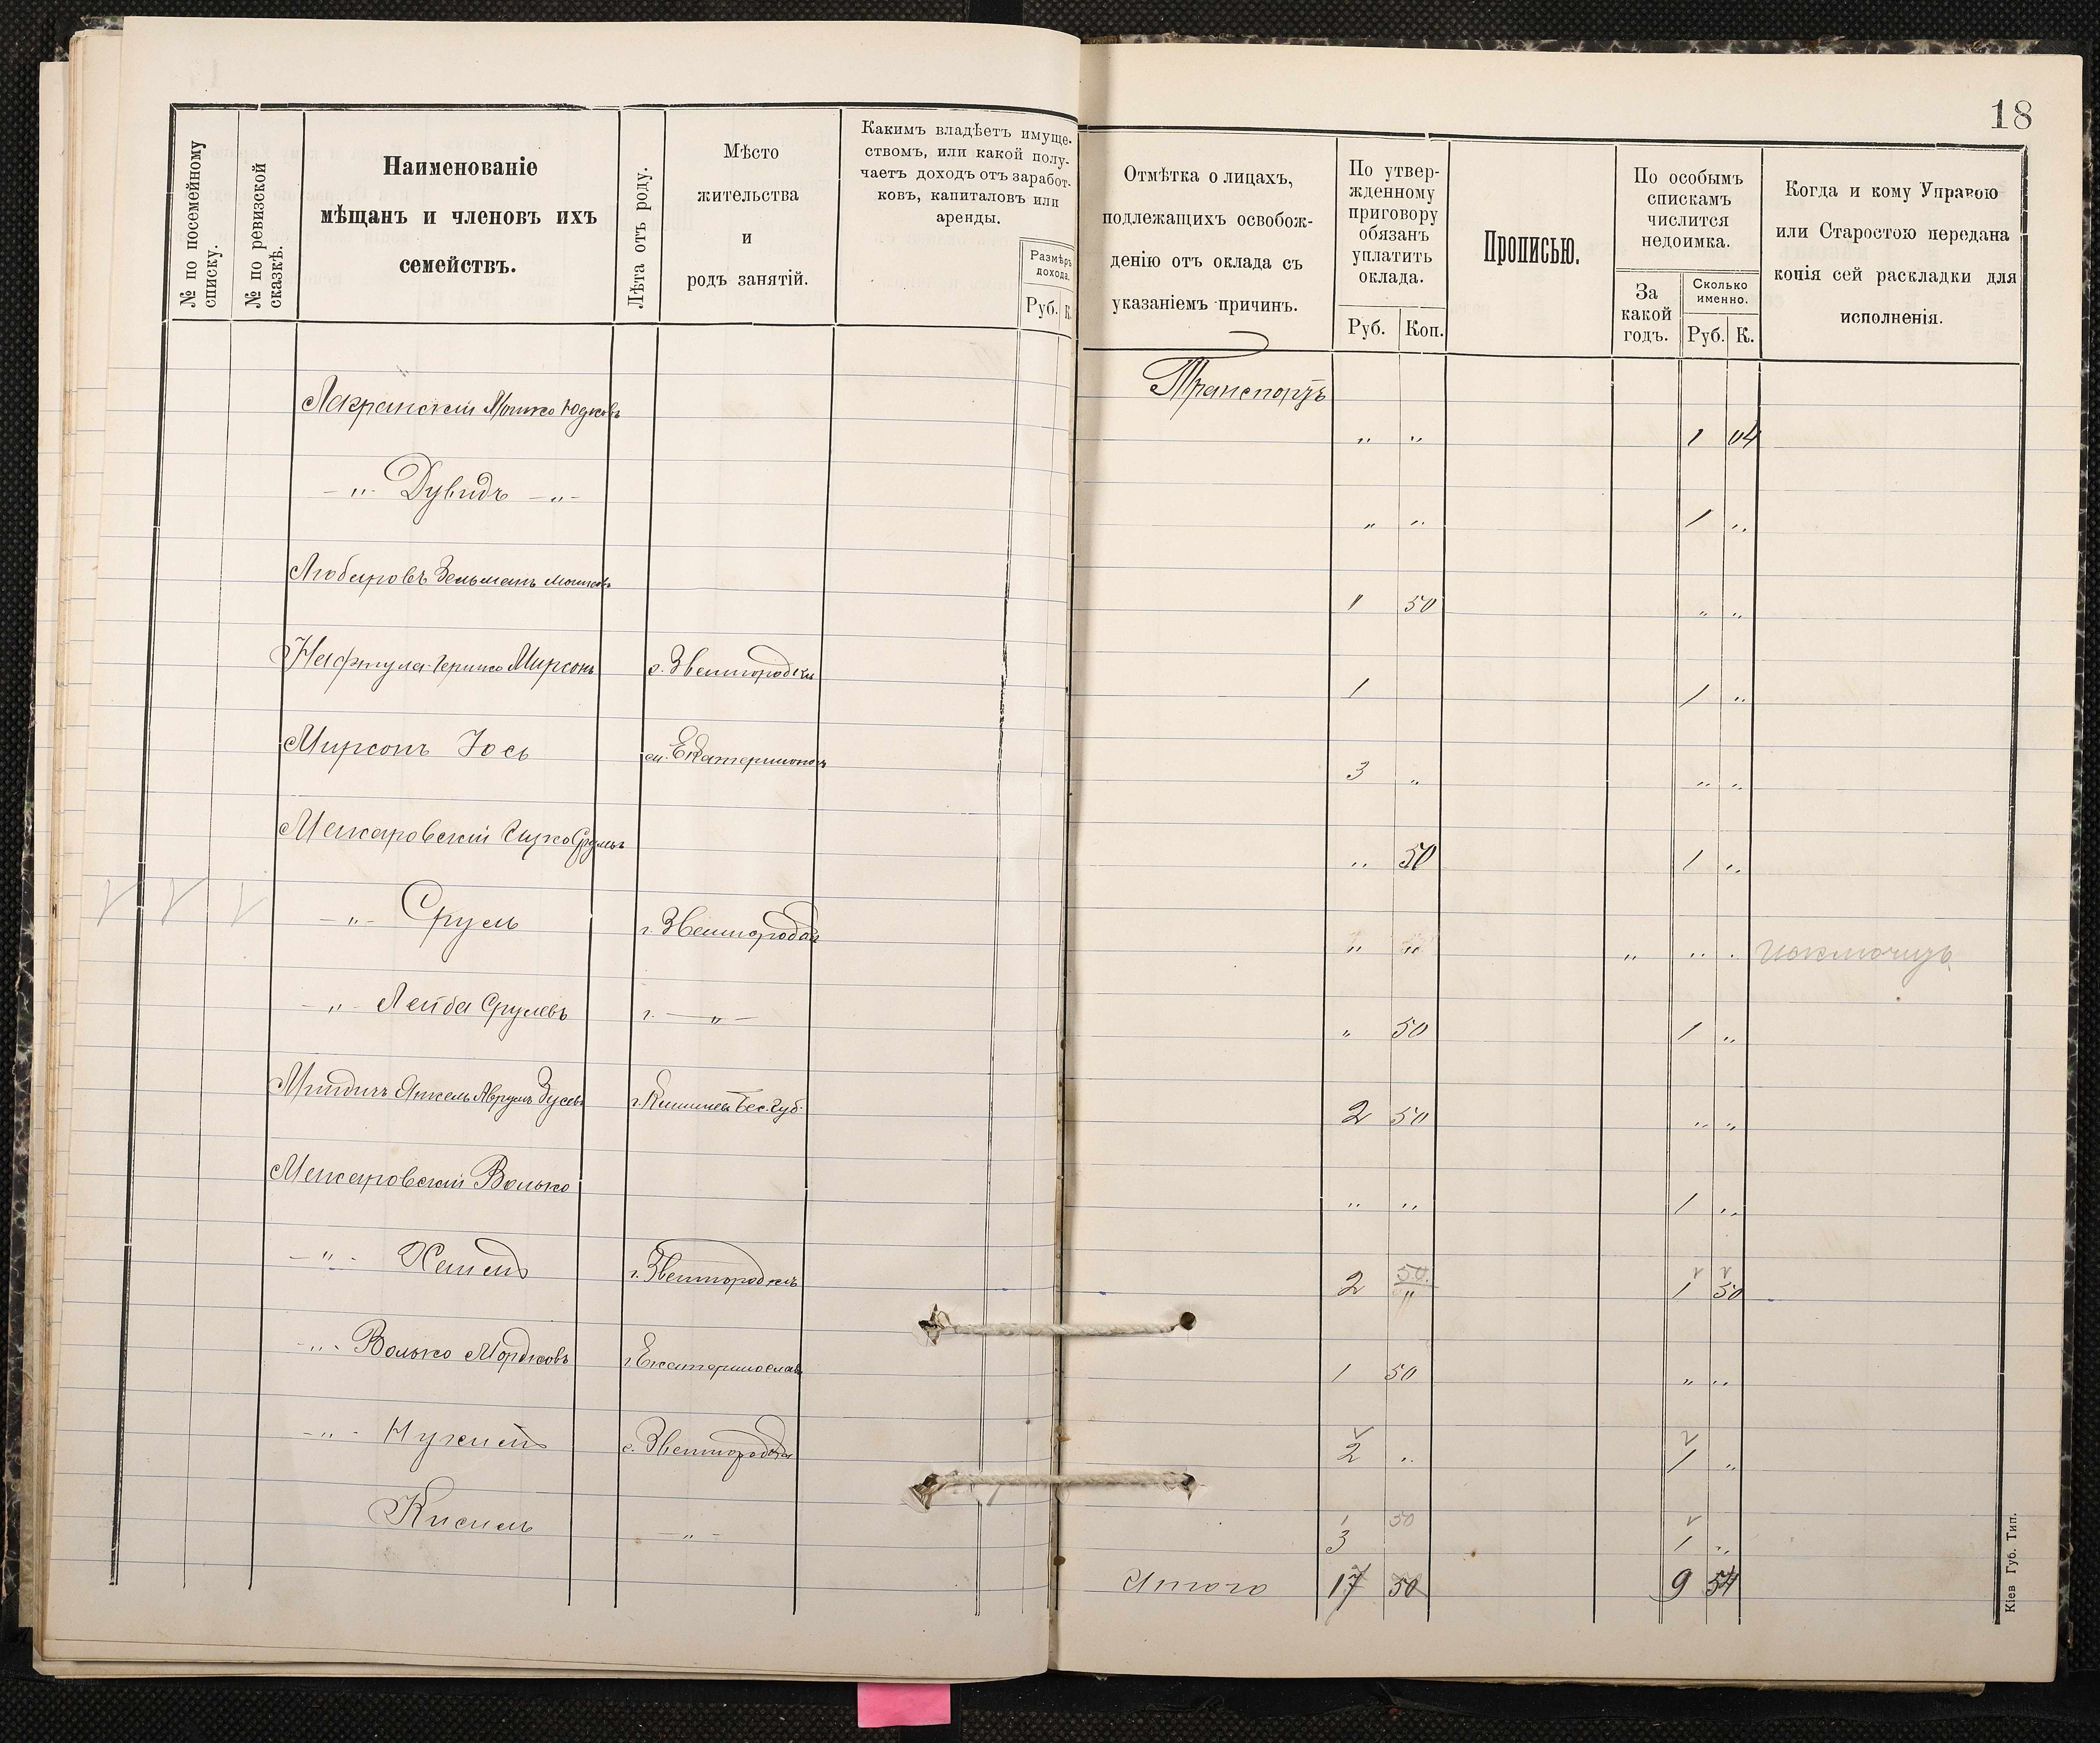 18
№ по посемейному списку.
№ по ревизской сказкѣ.
Наименованіе
мѣщанъ и членовъ ихъ
семействъ.
Лѣта отъ роду.
Мѣсто
жительства
и
родъ занятій.
Какимъ владѣетъ имуще-
ствомъ, или какой полу-
чаетъ доходъ отъ заработ-
ковъ, капиталовъ или
аренды.
Размѣръ
дохода.
Руб. К.
Отмѣтка о лицахъ,
подлежащихъ освобож-
денію отъ оклада съ
указаніемъ причинъ.
По утвер-
жденному
приговору
обязанъ
уплатить
оклада.
Руб. Коп.
Прописью.
По особымъ
спискамъ
числится
недоимка.
За
какой
годъ.
Сколько
именно.
Руб. К.
Когда и кому Управою
или Старостою передана
копія сей раскладки для
исполненія.
Транспортъ
Мошко Юдковъ „ „ 1 04
-„- Дувидъ -„- „ „ 1 „
Любаровъ Зельманъ Мошковъ 1 50 „ „
Нафтула Мирсонъ г. Звенигородка 1 1 „
Мирсонъ Іось м. Екатеринополь 3 „ „ „
Межаровскій Ицко Срулевъ „ 50 1 „
-„- Сруль г. Звенигородка „ „ „ „ „ исключить
-„- Лейба Срулевъ г. -„- „ 50 1 „
Янкель Аврумъ Зусевъ г. Кишиневъ Бес. губ. 2 50 „ „
Межаровскій Волько „ „ 1 „
-„- г. Звенигородка 2 50 „ 1 50
-„- Волько Мордковъ г. Екатеринославъ 1 50 „ „
-„- Нухимъ г. Звенигородка 2 „ 1 „
Кисиль -„- 1 50 3 1 „
Итого 17 50 9 54
Кіев Губ. Тип.